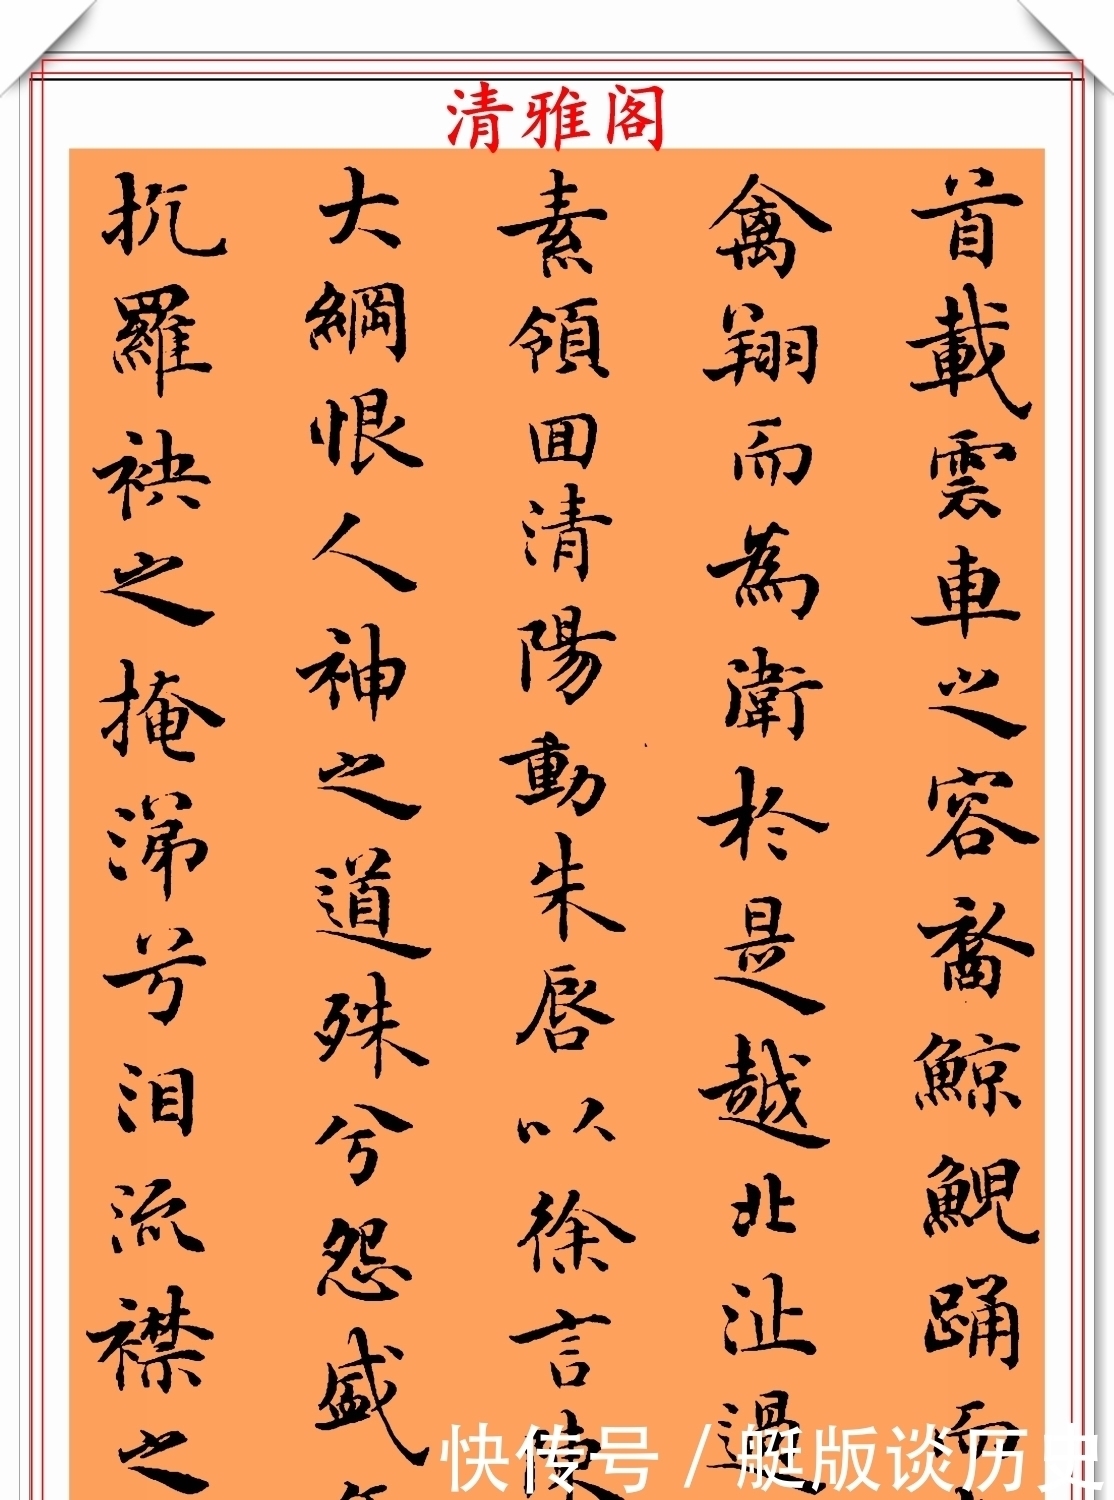 清雅阁
首載雲車之容裔鯨鯢踊而
禽翔而為衛於是越北沚過
素領迴清陽動朱唇以徐言陳
大綱恨人神之道殊兮怨盛年
抗羅袂之掩涕兮泪流襟之
快传号/艇版谈历史